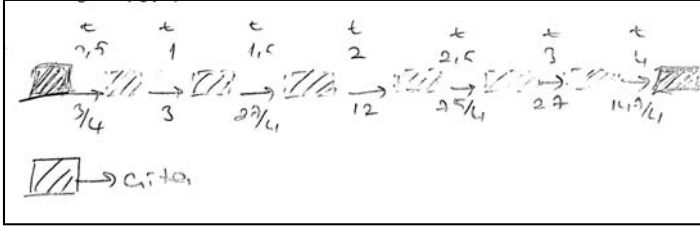 t t t t t t t
0,5 1 1,5 2 2,5 3 4
3/4 3 27/4 12 75/4 27 147/4
çita